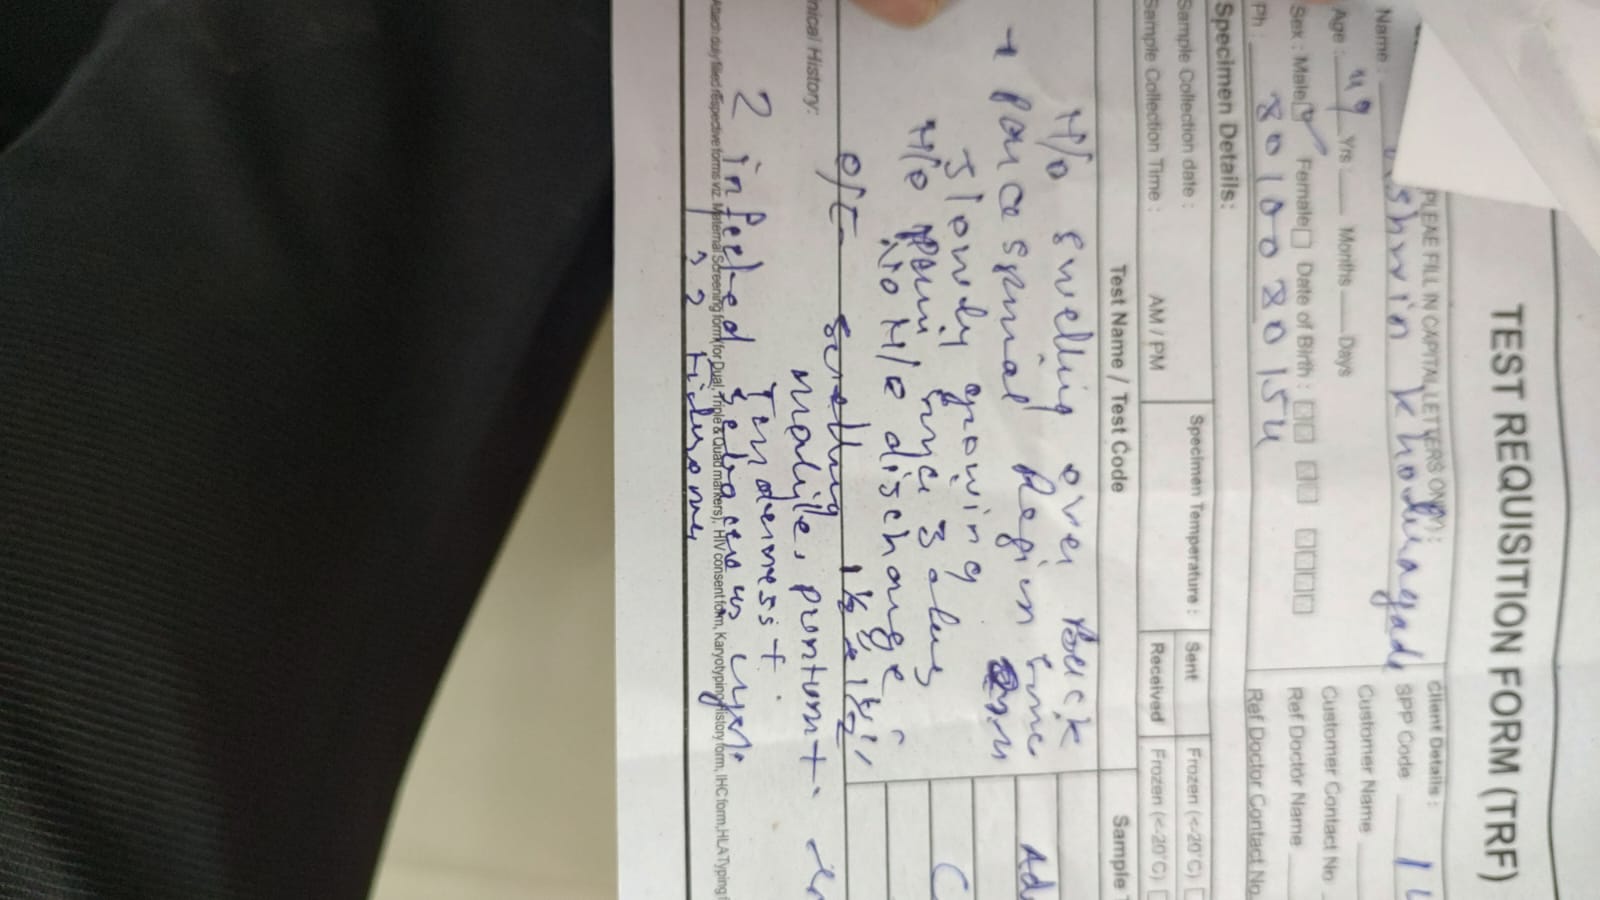 TEST REQUISITION FORM (TRF)
FILL IN CAPITAL LETTERS ONLY) :
Client Details :
Name : khodnagade
SPP Code
Age : 49 Yrs Months Days
Customer Name
Sex : Male Female Date of Birth :
Customer Contact No
Ref Doctor Name
Ph : 8010080154
Ref Doctor Contact No
Specimen Details:
Sample Collection date :
Specimen Temperature :
Sent
Frozen (<-20°C)
Sample Collection Time : AM / PM
Received
Frozen (<-20°C)
Test Name / Test Code
Sample
H/o swelling over Back
+ Paraspinal Region
slowly growing
H/o pain since 3 days
No H/o discharge
O/E swelling 1½ x 1½"
nical History:
mobile,
Tenderness +
2 infected sebaceous cyst.
Attach duly filled respective forms viz. Maternal Screening form (for Dual, Triple & Quad markers), HIV consent form, Karyotyping History form, IHC form, HLA Typing